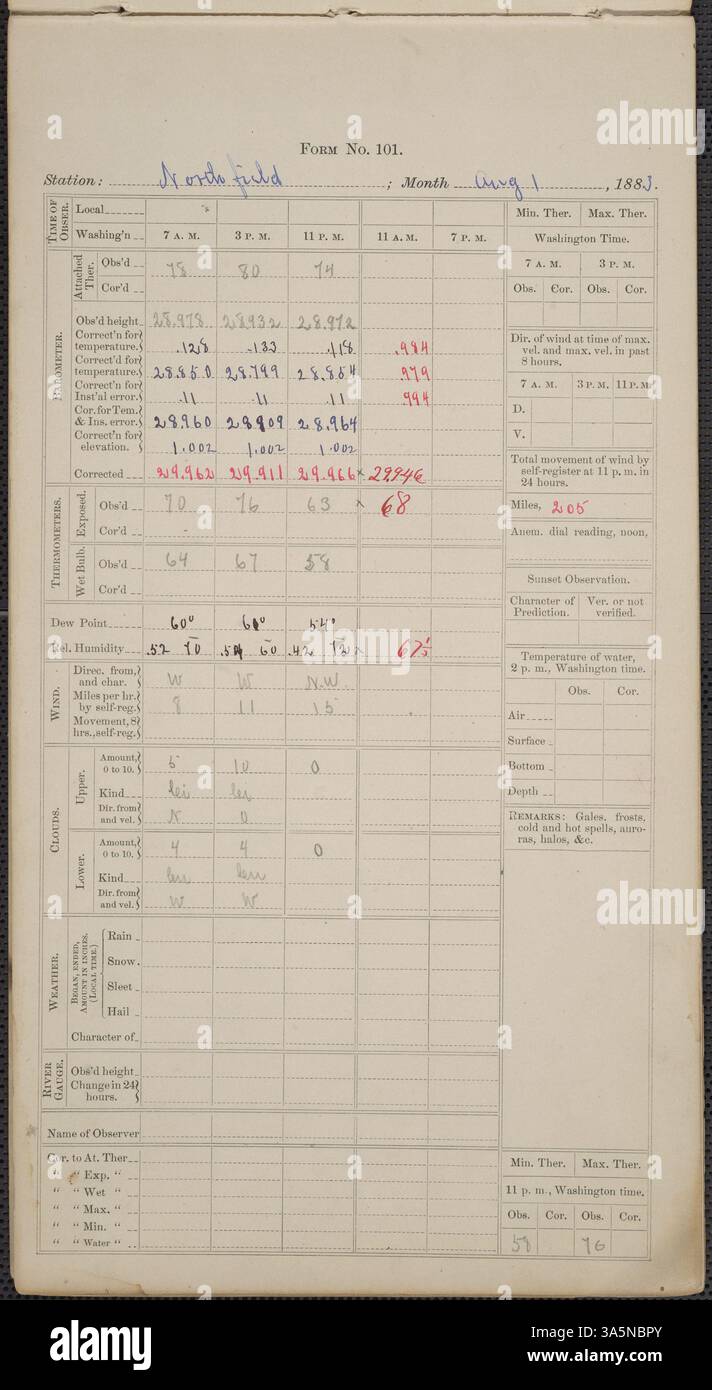 FORM No. 101.
Station: Northfield ; Month Aug 1 , 1883.
TIME OF OBSER.
Local
Washing'n 7 A. M. 3 P. M. 11 P. M. 11 A. M. 7 P. M.
BAROMETER.
Attached Ther.
Obs'd 78 80 74
Cor'd
Obs'd height 28.978 28.932 28.972
Correct'n for temperature. .128 .133 .118 .984
Correct'd for temperature. 28.850 28.799 28.854 .979
Correct'n for Inst'al error. .11 .11 .11 .994
Cor. for Tem. & Ins. error. 28.960 28.909 28.964
Correct'n for elevation. 1.002 1.002 1.002
Corrected 29.962 29.911 29.966 x 29.946
THERMOMETERS.
Exposed.
Obs'd 70 76 63 x 68
Cor'd -
Wet Bulb.
Obs'd 64 67 58
Cor'd
Dew Point 60° 61° 54°
Rel. Humidity .52 70 .54 60 .42 72 x 67⅓
WIND.
Direc. from, and char. W W N.W.
Miles per hr. by self-reg. 8 11 15
Movement, 8 hrs., self-reg.
CLOUDS.
Upper.
Amount, 0 to 10. 5 10 0
Kind
Dir. from and vel. N 0
Lower.
Amount, 0 to 10. 4 4 0
Kind
Dir. from and vel. W W
WEATHER.
BEGAN, ENDED, AMOUNT IN INCHES. (LOCAL TIME.)
Rain
Snow.
Sleet
Hail
Character of
RIVER GAUGE.
Obs'd height
Change in 24 hours.
Name of Observer
Cor. to At. Ther
" " Exp. "
" " Wet "
" " Max. "
" " Min. "
" " Water "
Min. Ther. Max. Ther.
Washington Time.
7 A. M. 3 P. M.
Obs. Cor. Obs. Cor.
Dir. of wind at time of max. vel. and max. vel. in past 8 hours.
7 A. M. 3 P. M. 11 P. M.
D.
V.
Total movement of wind by self-register at 11 p. m. in 24 hours.
Miles, 205
Anem. dial reading, noon,
Sunset Observation.
Character of Prediction. Ver. or not verified.
Temperature of water, 2 p. m., Washington time.
Obs. Cor.
Air
Surface
Bottom
Depth
REMARKS: Gales, frosts, cold and hot spells, auroras, halos, &c.
Min. Ther. Max. Ther.
11 p. m., Washington time.
Obs. Cor. Obs. Cor.
58 76
alamy
alamy
alamy
alamy
alamy
Image ID: 3A5NBPY
www.alamy.com